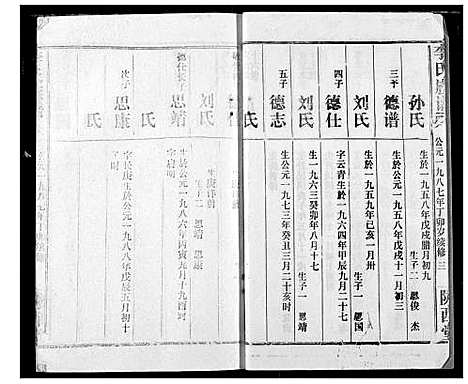 李氏族譜
公元一九八七年丁卯岁续修
三
陇西堂
孙氏
生於一九五八年戊戌腊月初九
生子二 恩俊 杰
三子 德谱
生於公元一九五八年戊戌十一月初三
刘氏
生於一九五九年己亥一月卅
生子一 恩国
四子 德仕
字云青生於一九六四年甲辰九月二十七
刘氏
生子一 恩靖
生一九六三癸卯年八月十七
五子 德志
生於公元一九七三年癸丑三月二十亥时
氏
德仕
刘氏
生子二 思靖 思康
德仕长子 思靖
生於公元一九八六年丙寅九月十九酉时
字启明
氏
次子 思康
生於公元一九八八年戊辰五月初十
氏